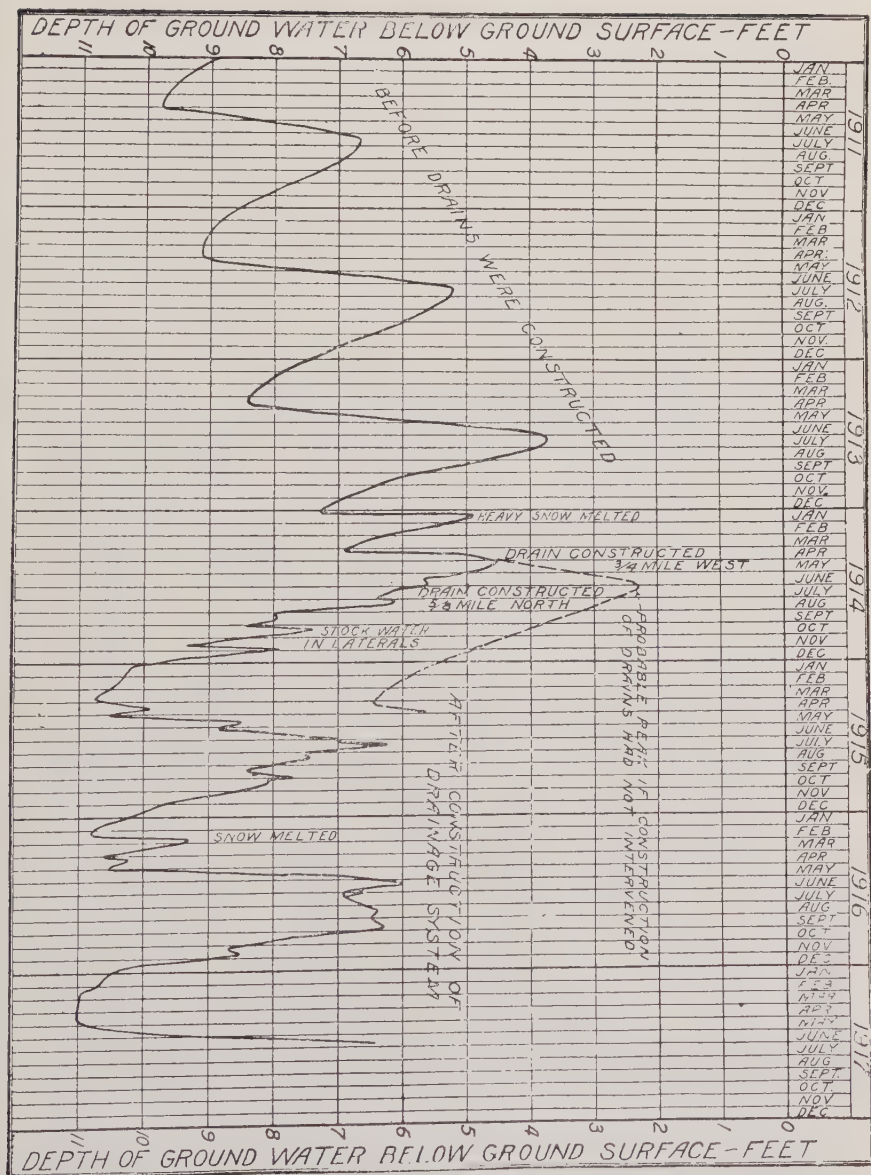 DEPTH OF GROUND WATER BELOW GROUND SURFACE-FEET
11 10 9 8 7 6 5 4 3 2 1 0
1911
JAN
FEB.
MAR
APR
MAY
JUNE
JULY
AUG.
SEPT
OCT
NOV
DEC
1912
JAN
FEB
MAR
APR.
MAY
JUNE
JULY
AUG.
SEPT
OCT
NOV.
DEC
1913
JAN
FEB
MAR
APR
MAY
JUNE
JULY
AUG
SEPT
OCT
NOV.
DEC
1914
JAN
FEB
MAR
APR
MAY
JUNE
JULY
AUG
SEPT
OCT
NOV
DEC
1915
JAN
FEB
MAR
APR
MAY
JUNE
JULY
AUG
SEPT
OCT
NOV
DEC
1916
JAN
FEB
MAR
APR
MAY
JUNE
JULY
AUG
SEPT
OCT
NOV
DEC
1917
JAN
FEB
MAR
APR
MAY
JUNE
JULY
AUG
SEPT.
OCT.
NOV
DEC
BEFORE DRAINS WERE CONSTRUCTED
HEAVY SNOW MELTED
DRAIN CONSTRUCTED
3/4 MILE WEST
DRAIN CONSTRUCTED
MILE NORTH
STOCK WATER
IN LATERALS
PROBABLE PEAK IF CONSTRUCTION
OF DRAINS HAD NOT INTERVENED
AFTER CONSTRUCTION OF
DRAINAGE SYSTEM
SNOW MELTED
11 10 9 8 7 6 5 4 3 2 1 0
DEPTH OF GROUND WATER BELOW GROUND SURFACE-FEET